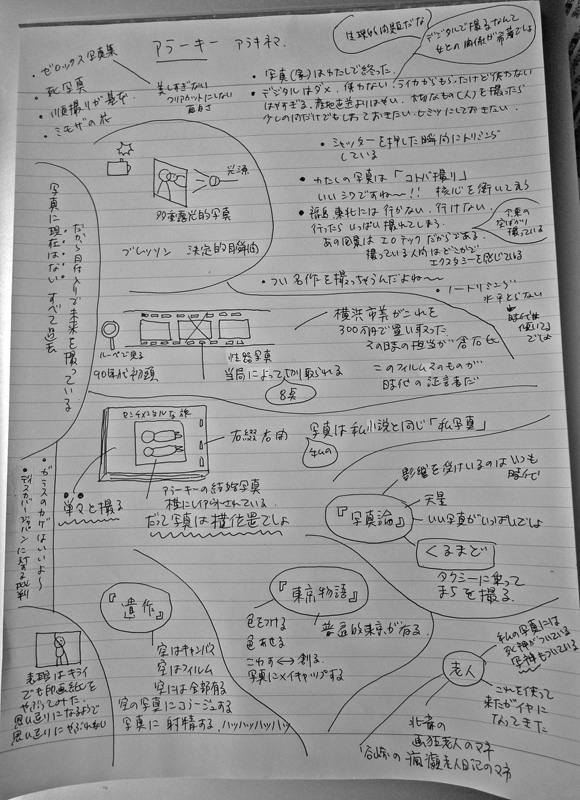 アラーキー アラキネマ
・ゼロックス写真集
・死写真
・順撮りが基本
・ミモザの花
美しすぎない
フリアカットにしない
面白さ
生理的な問題だな
デジタルで撮るなんて
女との関係が希薄でしょ
・写真(家)はわたしで終った。
・デジタルはダメ、使わない。ライカからもらったけど使わない
はやすぎる。産地直送よりはやい。大切なもの(人)を撮ったら
少しの間だけでもしまっておきたい。ヒミツにしておきたい。
・シャッターを押した瞬間にトリミング
している
・わたしの写真は「コトバ撮り」
いいシクですね〜!! 核心を衝いてえら
・福島 東北には行かない、行けない。
行ったらいっぱい撮れてしまう。
あの風景はエロチックだからである。
撮っている人間はどこかで
エクスタシーを感じている
空ばかり
撮っている
光源
90年露光的写真
ブレッソン 決定的瞬間
写真に現在はない すべて過去
だから日付入りで未来を撮っている
・つい名作を撮っちゃうんだよね〜
・ノートリミング
水平とらない
時代は
傾いてる
でしょ
ルーペで見る
90年代初頭
性器写真
当局によって切り取られる
8点
横浜市美がこれを
300万円で買い取った
その時の担当が倉石氏
このフィルムそのものが
時代の証言者だ
センチメンタルな旅
右綴 右開
単々と撮る
アラーキーの結婚写真
横にレイアウトされている。
だって写真は横位置でしょ
写真は私小説と同じ「私写真」
影響を受けているのはいつも
時代
『写真論』
天皇
いい写真がいっぱいでしょ
くるまど
タクシーに乗って
まちを撮る。
・ガラスのカゲはいいよ〜
・ディスカバージャパンに対する批判
『遺作』
空はキャンバス
空はフィルム
空には全部有る
空の写真にコラージュする
写真に射精する。ハッハッハッハッ
『東京物語』
色をつける
色あせる
こわす↔創る。
写真にメイキャップする
普遍的東京が有る。
表現はキライ
でも印画紙を
やぶってみた。
思い通りになるようで
思い通りにやぶれない
老人
私の写真には
死神がついている
写神もついている
これを使って
来たがイヤに
なってきた
北斎の
画狂老人のマネ
谷崎の瘋癲老人日記のマネ